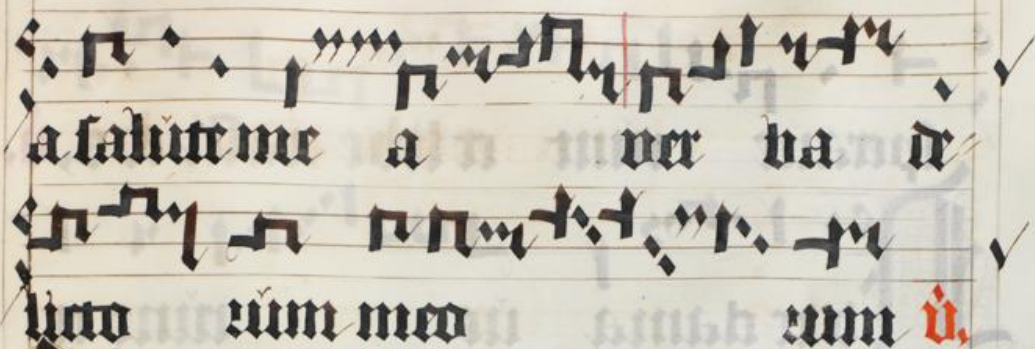 a salute me a ver ba de
licto rum meo rum v̇.